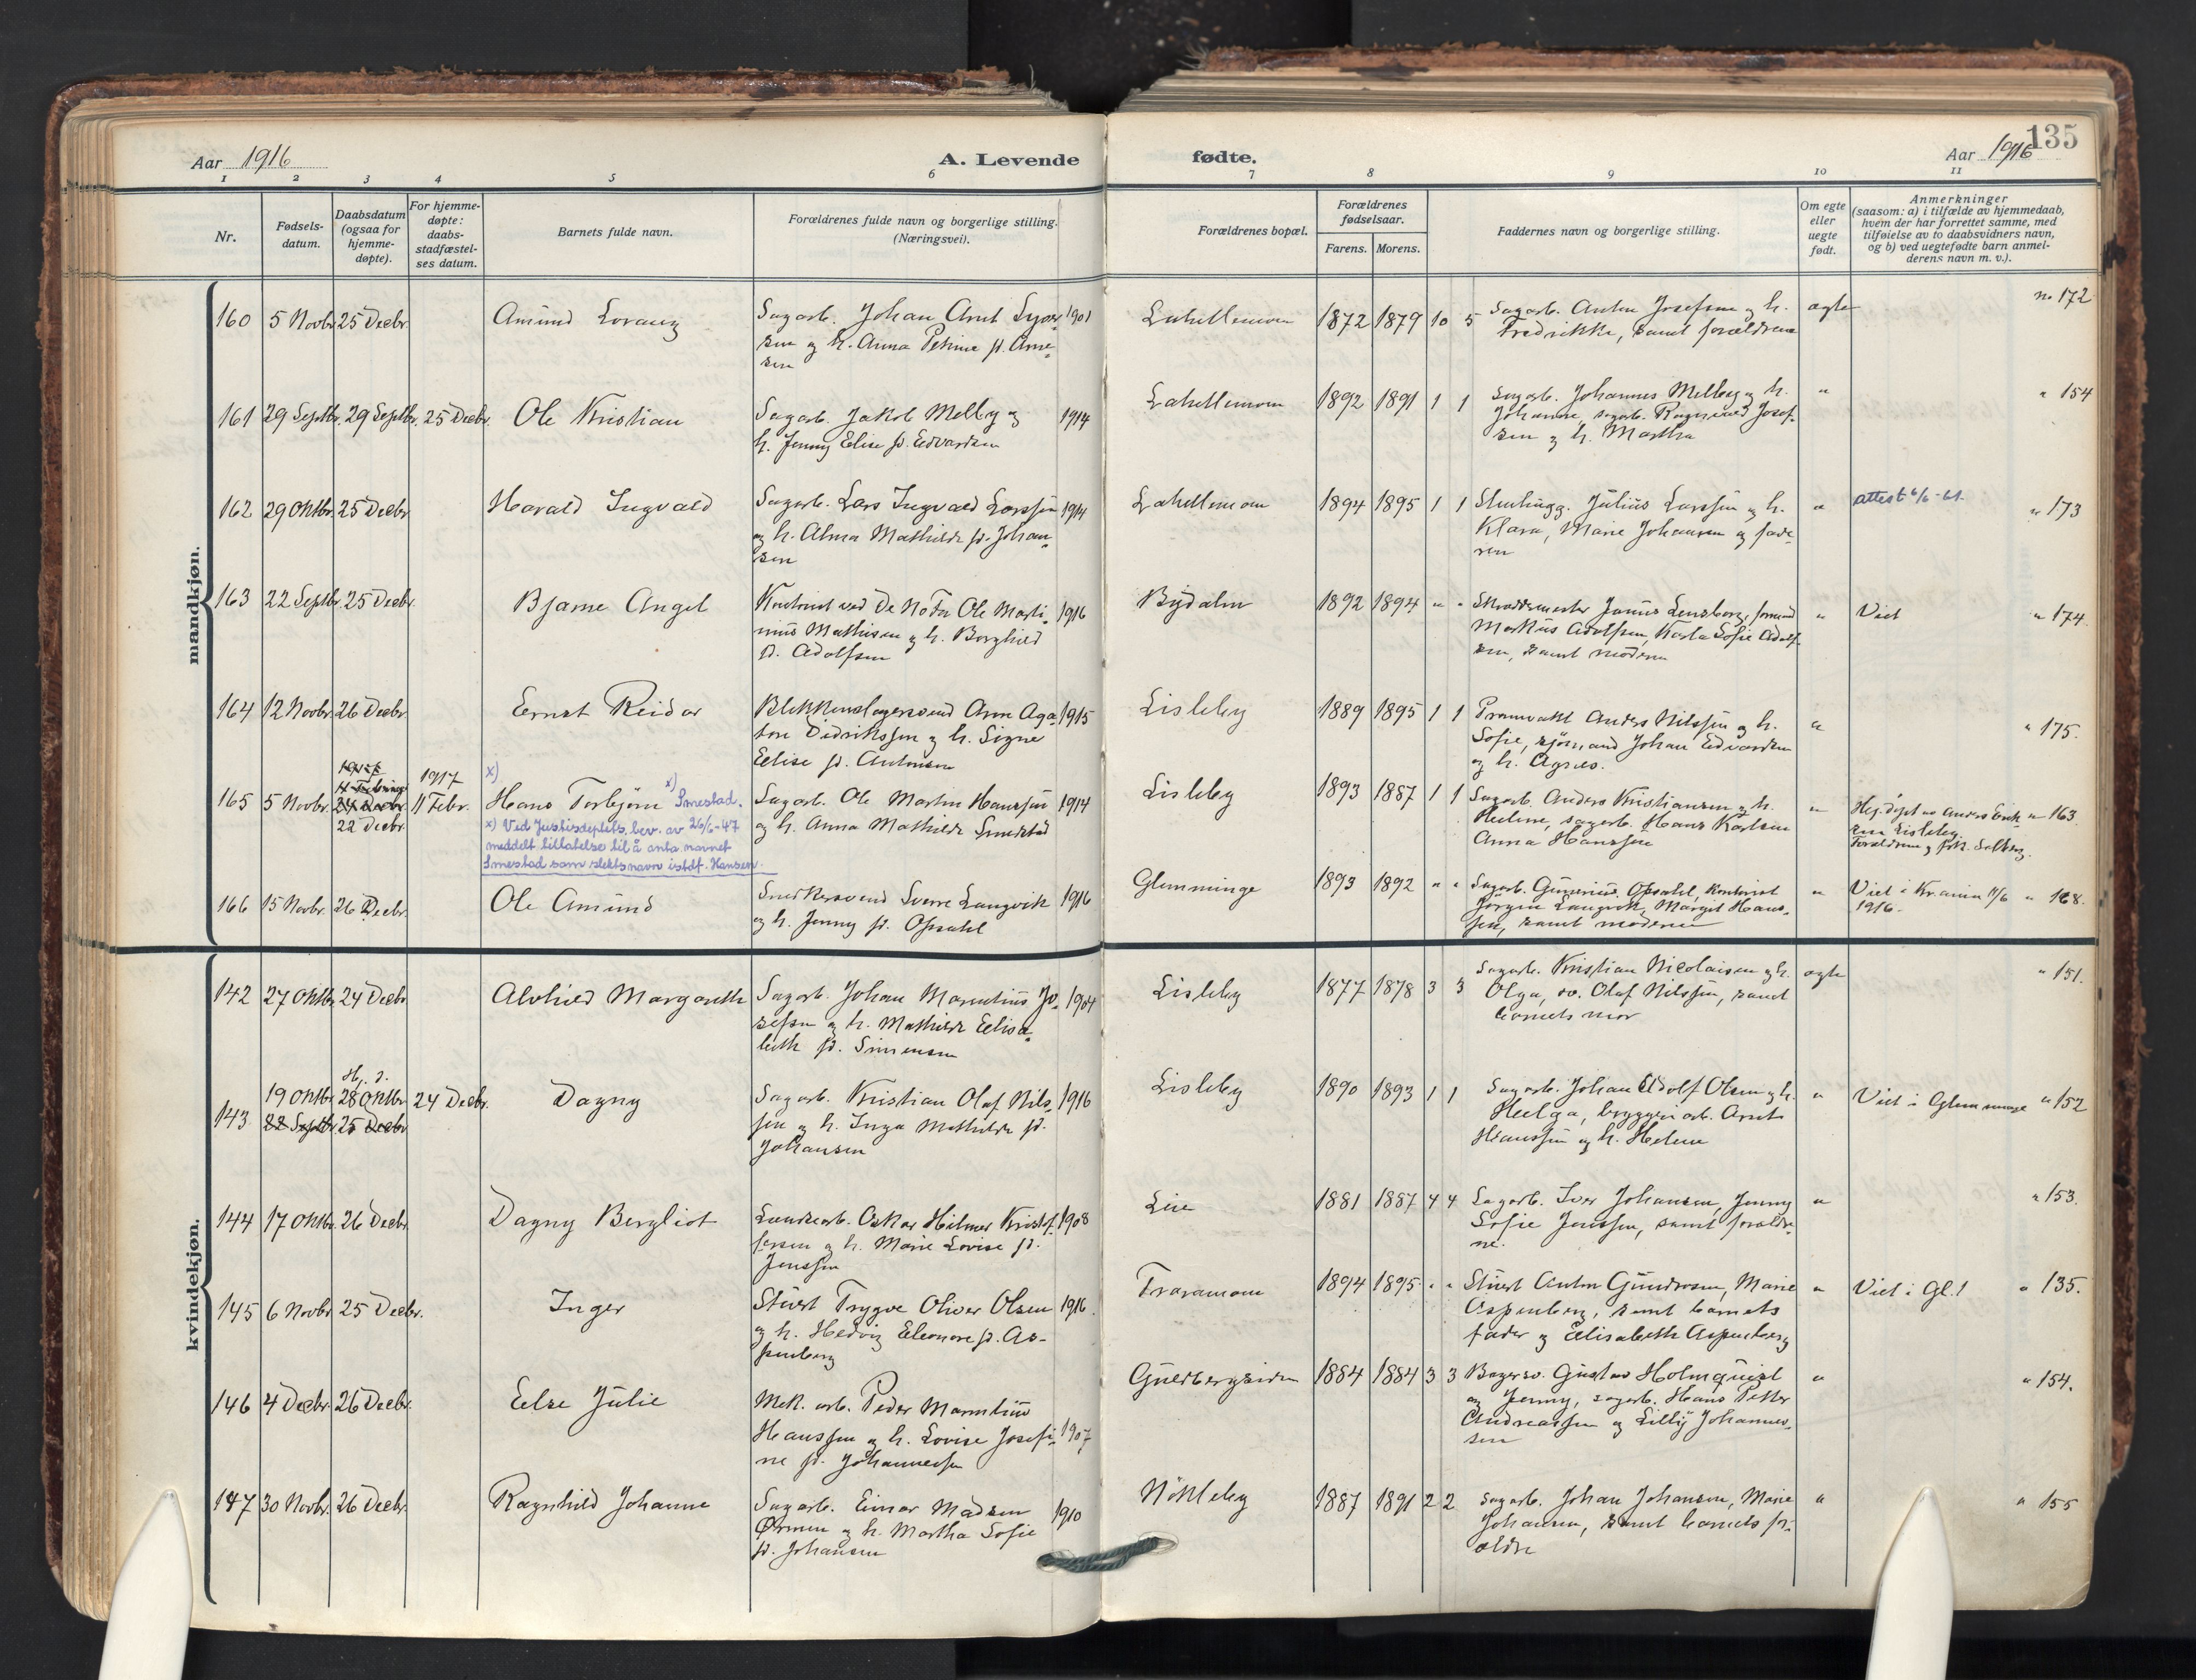 135
Aar 1916
A. Levende
fødte.
Aar 1916
1 2 3 4 5 6 7 8 9 10 11
Nr.
Fødsels-
datum.
Daabsdatum
(ogsaa for
hjemme-
døpte).
For hjemme-
døpte:
daabs-
stadfæstel-
ses datum.
Barnets fulde navn.
Forældrenes fulde navn og borgerlige stilling.
(Næringsvei).
Forældrenes bopæl.
Forældrenes
fødselsaar.
Farens. Morens.
Faddernes navn og borgerlige stilling.
Om egte
eller
uegte
født.
Anmerkninger
(saasom: a) i tilfælde av hjemmedaab,
hvem der har forrettet samme, med
tilføielse av to daabsvidners navn,
og b) ved uegtefødte barn anmel-
derens navn m. v.).
mandkjøn.
160 5 Novbr. 25 Decbr. Amund Lorang
Sagarb. Johan Arnt 1901
sen og h. Anna Petrine f. Arne-
sen
1872 1879 10 5
Sagarb. Anton Josefsen og h.
Fredrikke, samt forældrene
egte
no 172
161 29 Septbr. 29 Septbr. 25 Decbr. Ole Kristian
Sagarb. Jakob Melby og 1914
h. Jenny Elise f. Edvardsen
1892 1891 1 1
Sagarb. Johannes Melby og h.
Johanne, sagarb. Ragnvald Josef-
sen og h. Martha
" " 154
162 29 Oktbr. 25 Decbr. Harald Ingvald
Sagarb. Lars Ingvald Larssen 1914
og h. Alma Mathilde f. Johan-
sen
1894 1895 1 1
Stenhugg. Julius Larssen og h.
Klara, Marie Johansen og fade-
ren
" attest 6/6-61. " 173
163 22 Septbr. 25 Decbr. Bjarne Angel
Kontorist ved De No Fa Ole Marti- 1916
nius Mathisen og h. Borghild
f. Adolfsen
Bydalen
1892 1894 " "
Skræddermester Lensberg, formand
Markus Adolfsen, Karla Sofie Adolf-
sen, samt moderen
" Viet " 174.
164 12 Novbr. 26 Decbr. Ernst Reidar
Blikkenslagersvend Arne Aga- 1915
ton Didriksen og h. Signe
Elise f. Antonsen
Lisleby
1889 1895 1 1
Pramvakt Anders Nilssen og h.
Sofie, sjømand Johan Edvardsen
og h. Agnes.
" " 175.
165 5 Novbr. 22 Decbr. 1917 11 Febr.
x) Hans Torbjørn x) Smestad.
x) Ved Justisdeptets bev. av 26/6-47
meddelt tillatelse til å anta navnet
Smestad som slektsnavn istdf. Hansen.
Sagarb. Ole Martin Hanssen 1914
og h. Anna Mathilde Smestad
Lisleby
1893 1887 1 1
Sagarb. Anders Kristiansen og h.
Helene, sagarb. Hans Karlsen
Anna Hanssen
" Hj. døpt av Anders Erik- " 163.
sen Lisleby.
Forældrene og frk. Solberg.
166 15 Novbr. 26 Decbr. Ole Amund
Snekkersvend Sverre Langvik 1916
og h. Jenny f. Opsahl
Glemminge
1893 1892 " "
Sagarb. Gunerius Opsahl, kontorist
Jørgen Langvik, Margit Hans-
sen, samt moderen
" Viet i Kr.ania 11/6 " 168.
1916.
kvindekjøn.
142 27 Oktbr. 24 Decbr. Alvhild Margareth
Sagarb. Johan Marentius Jo- 1904
sefsen og h. Mathilde Elisa-
beth f. Simensen
Lisleby
1877 1878 3 3
Sagarb. Kristian Nicolaisen og h.
Olga, sv. Olaf Nilssen, samt
barnets mor
egte " 151.
Hj. d.
143 19 Oktbr. 28 Oktbr. 24 Decbr. Dagny
22 Septbr. 25 Decbr.
Sagarb. Kristian Olaf Nils- 1916
sen og h. Inga Mathilde f.
Johansen
Lisleby
1890 1893 1 1
Sagarb. Johan Adolf Olsen og h.
Helga, bryggeriarb. Arnt
Hanssen og h. Helene
" Viet i Glemminge " 152
144 17 Oktbr. 26 Decbr. Dagny Bergliot
Oskar Hilmar Kristof- 1908
fersen og h. Marie Lovise f.
Jenssen
Lie
1881 1887 4 4
Sagarb. Iver Johansen, Jenny
Sofie Jenssen, samt forældre-
ne.
" " 153.
145 6 Novbr. 25 Decbr. Inger
Stuert Trygve Oliver Olsen 1916.
og h. Hedvig Eleonore f. As-
penberg
Traramoen
1894 1895 " "
Stuert Anton Gundersen, Marie
Aspenberg, samt barnets
fader og Elisabeth Aspenberg
" Viet i Gl.! " 135.
146 4 Decbr. 26 Decbr. Else Julie
Mek. arb. Peder Marentius
Hanssen og h. Lovise Josefi- 1907
ne f. Johannessen
Guldbergsiden
1884 1884 3 3
Bagersv. Gustav Holmquist
og Jenny, sagarb. Hans Petter
Andreassen og Lilly Johannes-
sen
" " 154.
147 30 Novbr. 26 Decbr. Ragnhild Johanne
Sagarb. Einar Madsen 1910
Ørmen og h. Martha Sofie
f. Johansen
Nøkleby
1887 1891 2 2
Sagarb. Johan Johansen, Marie
Johansen, samt barnets for-
ældre
" " 155